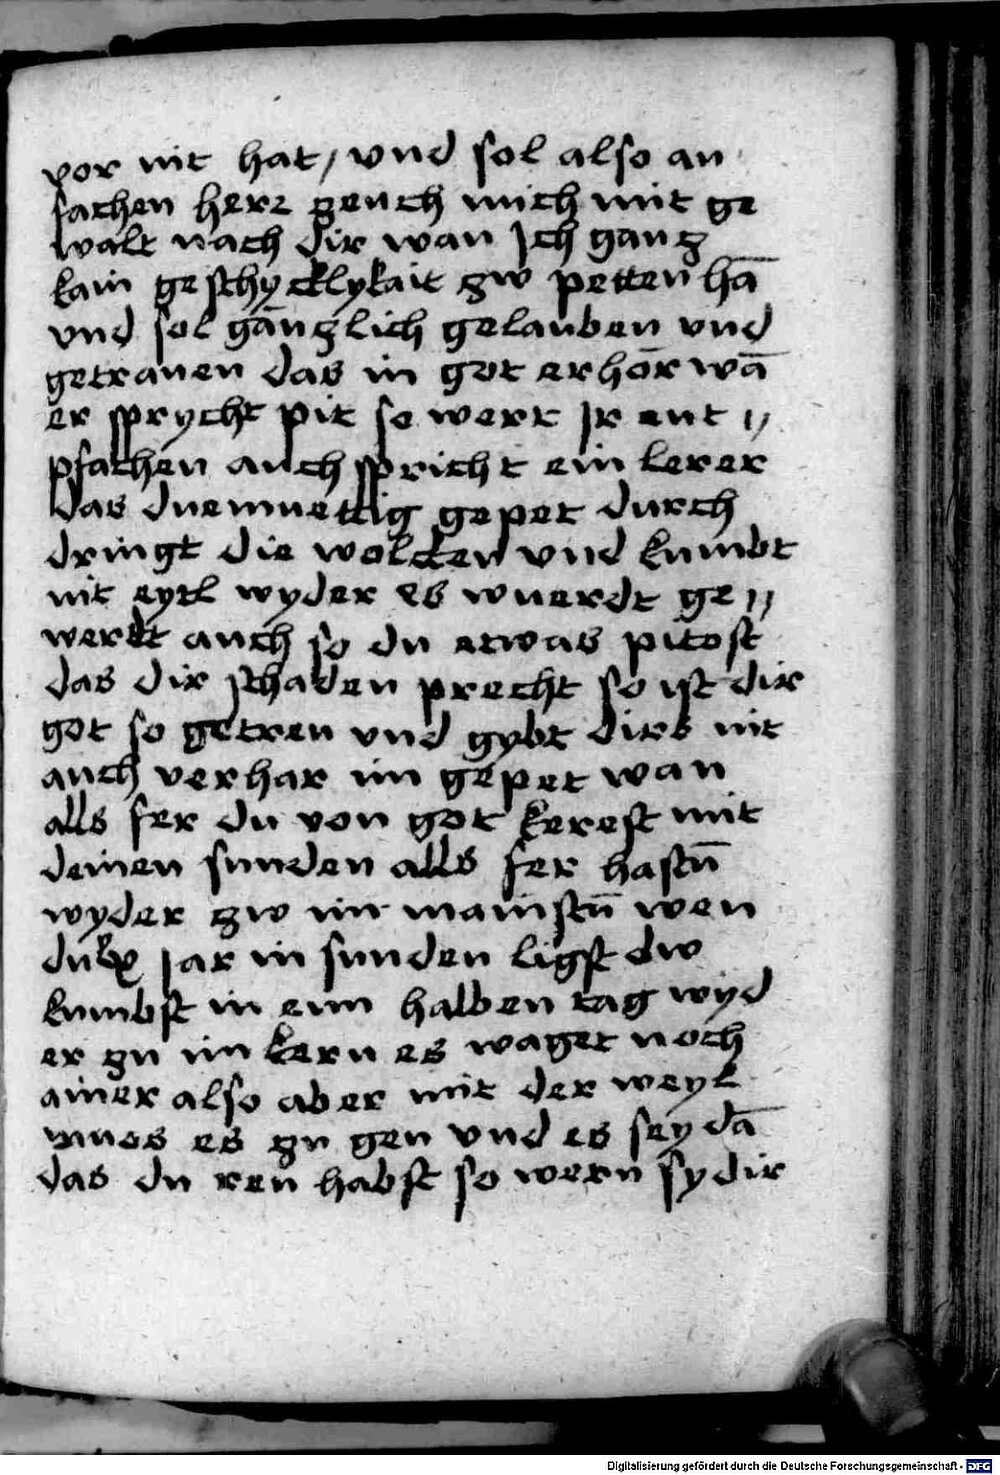 vor nit hat / vnd sol also an
fachen herr zeuch mich mit ge
walt nach dir wan Jch gancz
kain geschycklykait zw petten hā
vnd sol gānczlich gelauben vnd
getrauen das in got erhor wā
er sprycht pit so wert Jr ent //
pfachen auch spricht ein lerer
das duemuettig gepet durch
dringt die wolcken vnd kumbt
nit eytl wyder es wuerdt ge //
werdt auch so du etwas pitost
das dir schaden precht so ist dir
got so getreu vnd gybt dirs nit
auch verhar im gepet wan
alls fer du von got kerest mit
deinen sunden alls fer hastū
wyder zw im mainstū wen
du lx Jar in sunden ligst dw
kumbst in eim halben tag wyd
er zu im kern es waget noch
ainer also aber mit der weyl
mues es zu gen vnd es sey dā
das du reu habst so wern sy dir
Digitalisierung gefördert durch die Deutsche Forschungsgemeinschaft - DFG